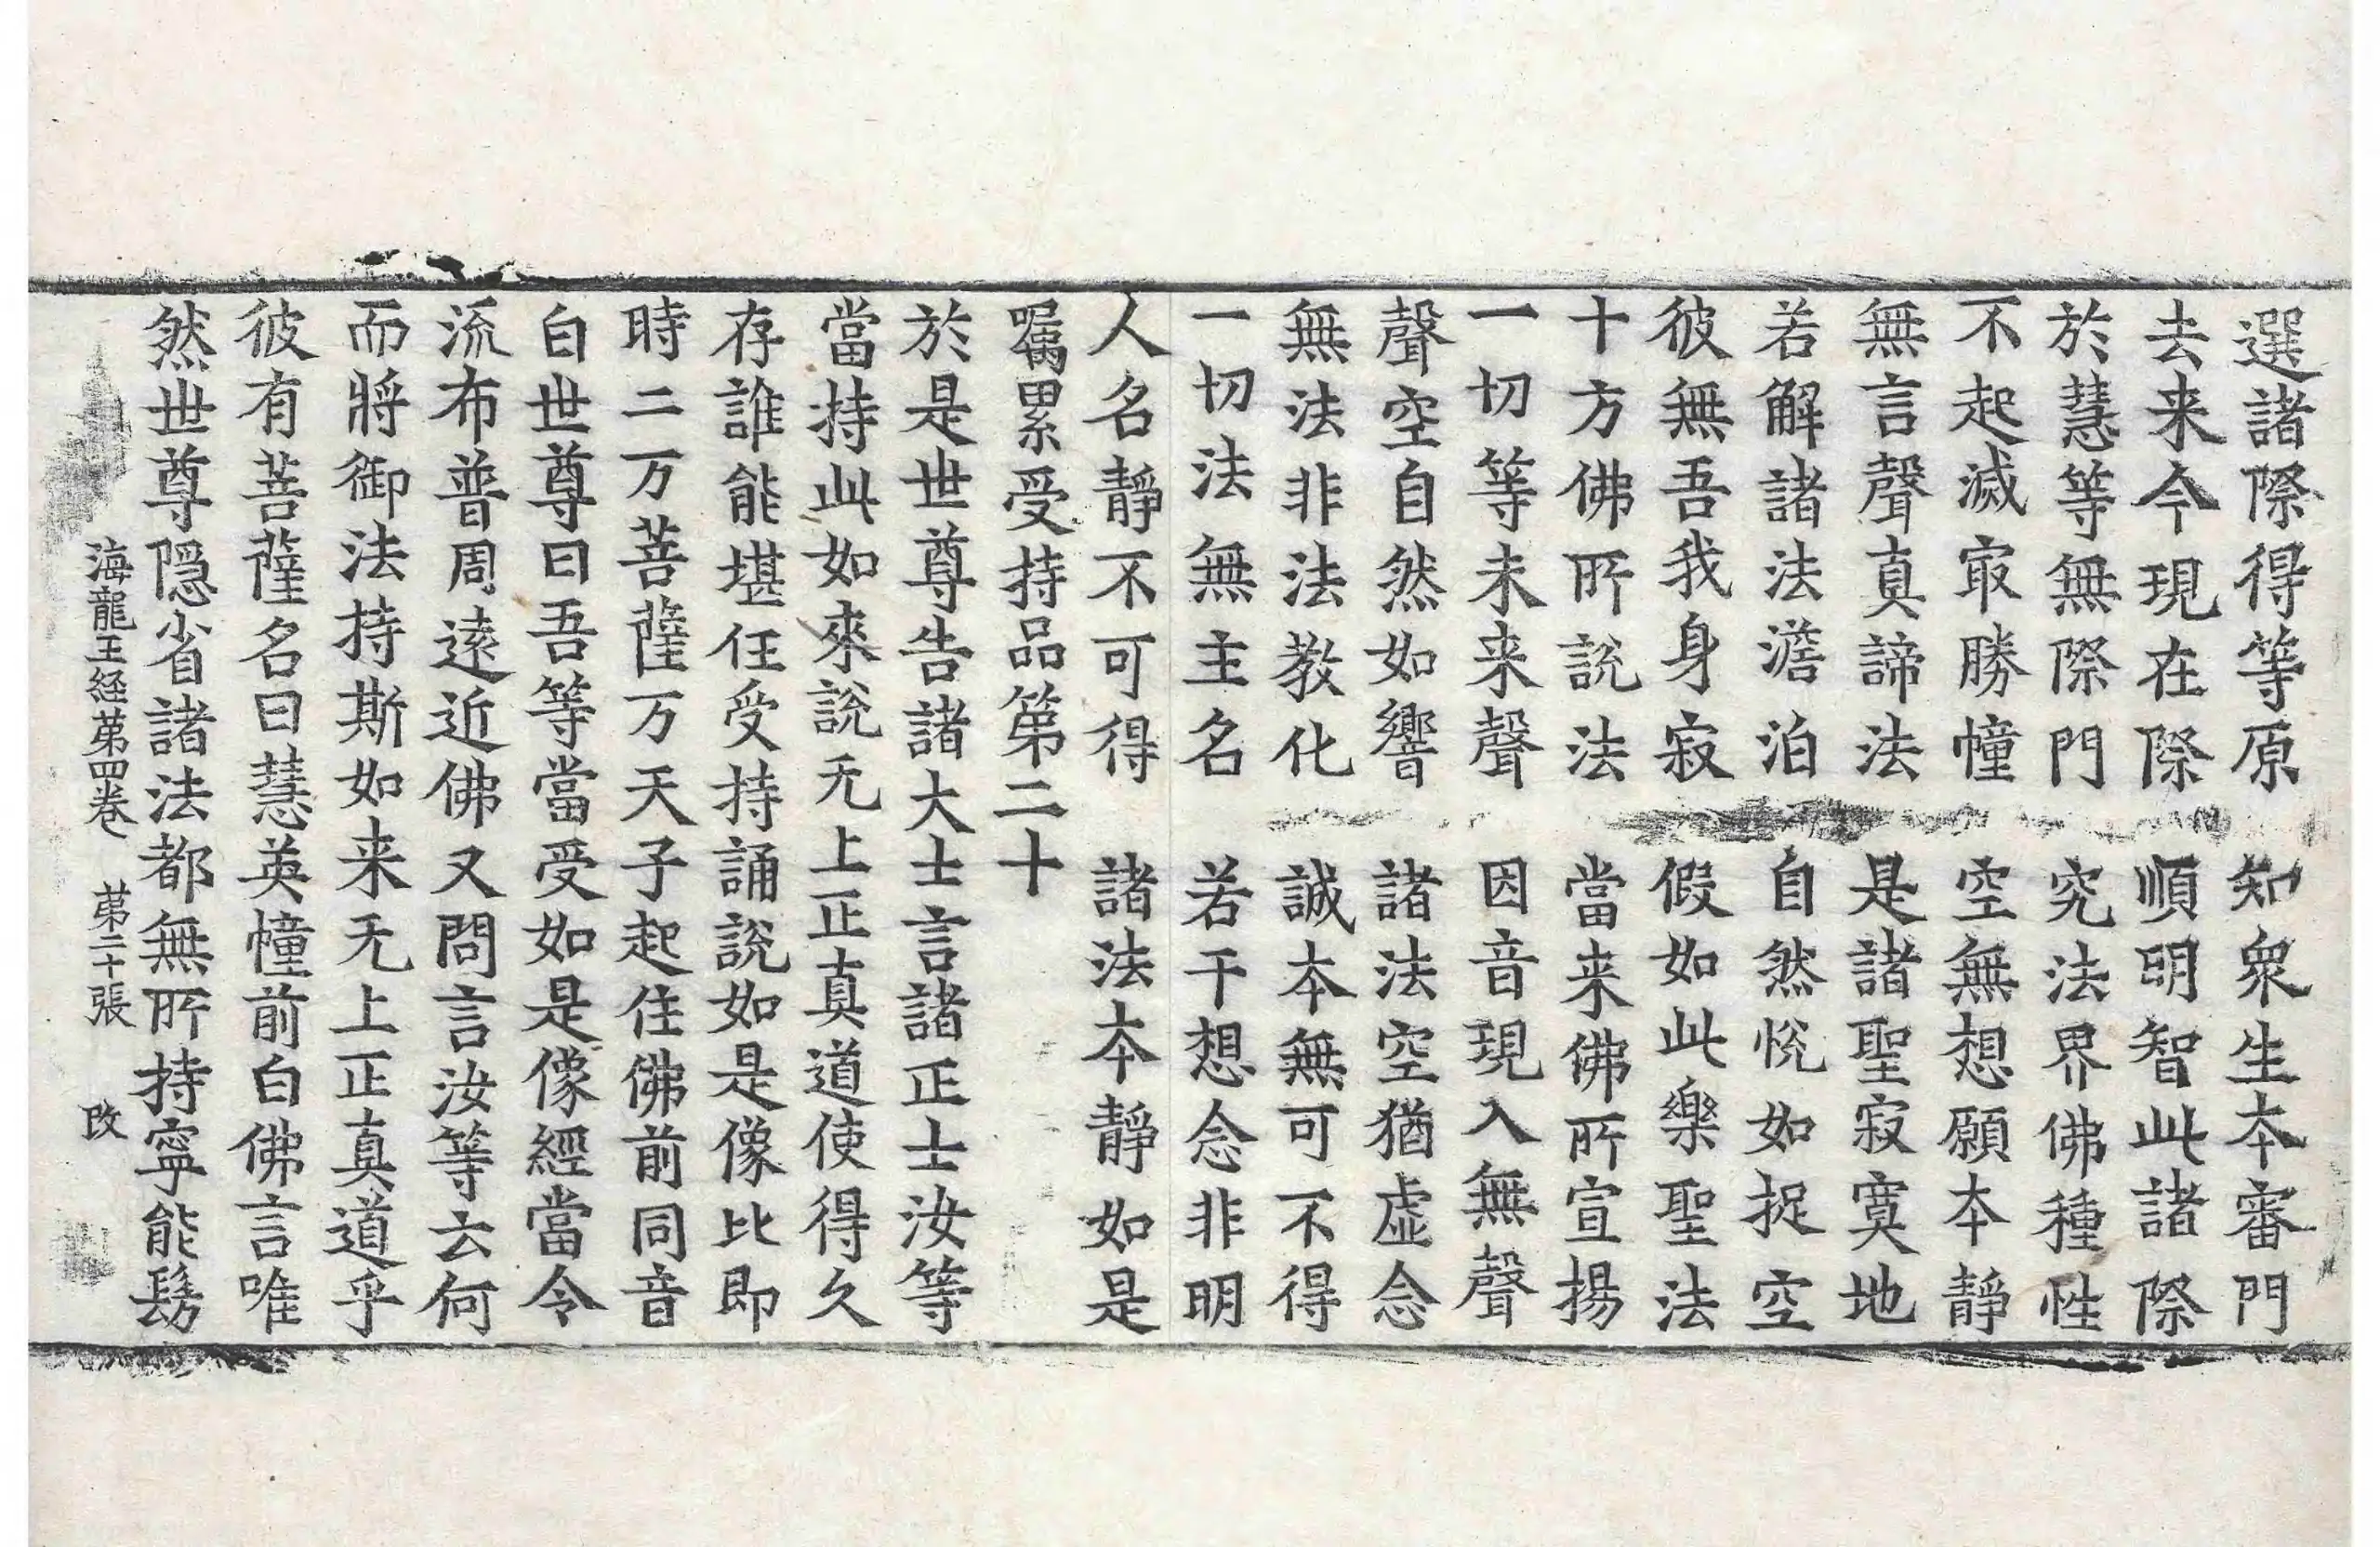 選諸際得等原　知衆生本審門
去来今現在際　順明智此諸際
於慧等無際門　究法界佛種性
不起滅㝡勝幢　空無想願本靜
無言聲真諦法　是諸聖寂寞地
若解諸法澹泊　自然恱如捉空
彼無吾我身寂　假如此樂聖法
十方佛所說法　當来佛所宣揚
一切等未来聲　因音現入無聲
聲空自然如響　諸法空猶虛念
無法非法教化　誠本無可不得
一切法無主名　若干想念非明
人名靜不可得　諸法本靜如是
囑累受持品第二十
於是世尊告諸大士言諸正士汝等
當持此如來說无上正真道使得久
存誰能堪任受持誦說如是像比即
時二万菩薩万天子起住佛前同音
白世尊曰吾等當受如是像經當令
流布普周遠近佛又問言汝等云何
而將御法持斯如来无上正真道乎
彼有菩薩名曰慧英幢前白佛言唯
然世尊隱省諸法都無所持寧能髣
海龍王経苐四卷　苐二十張　改